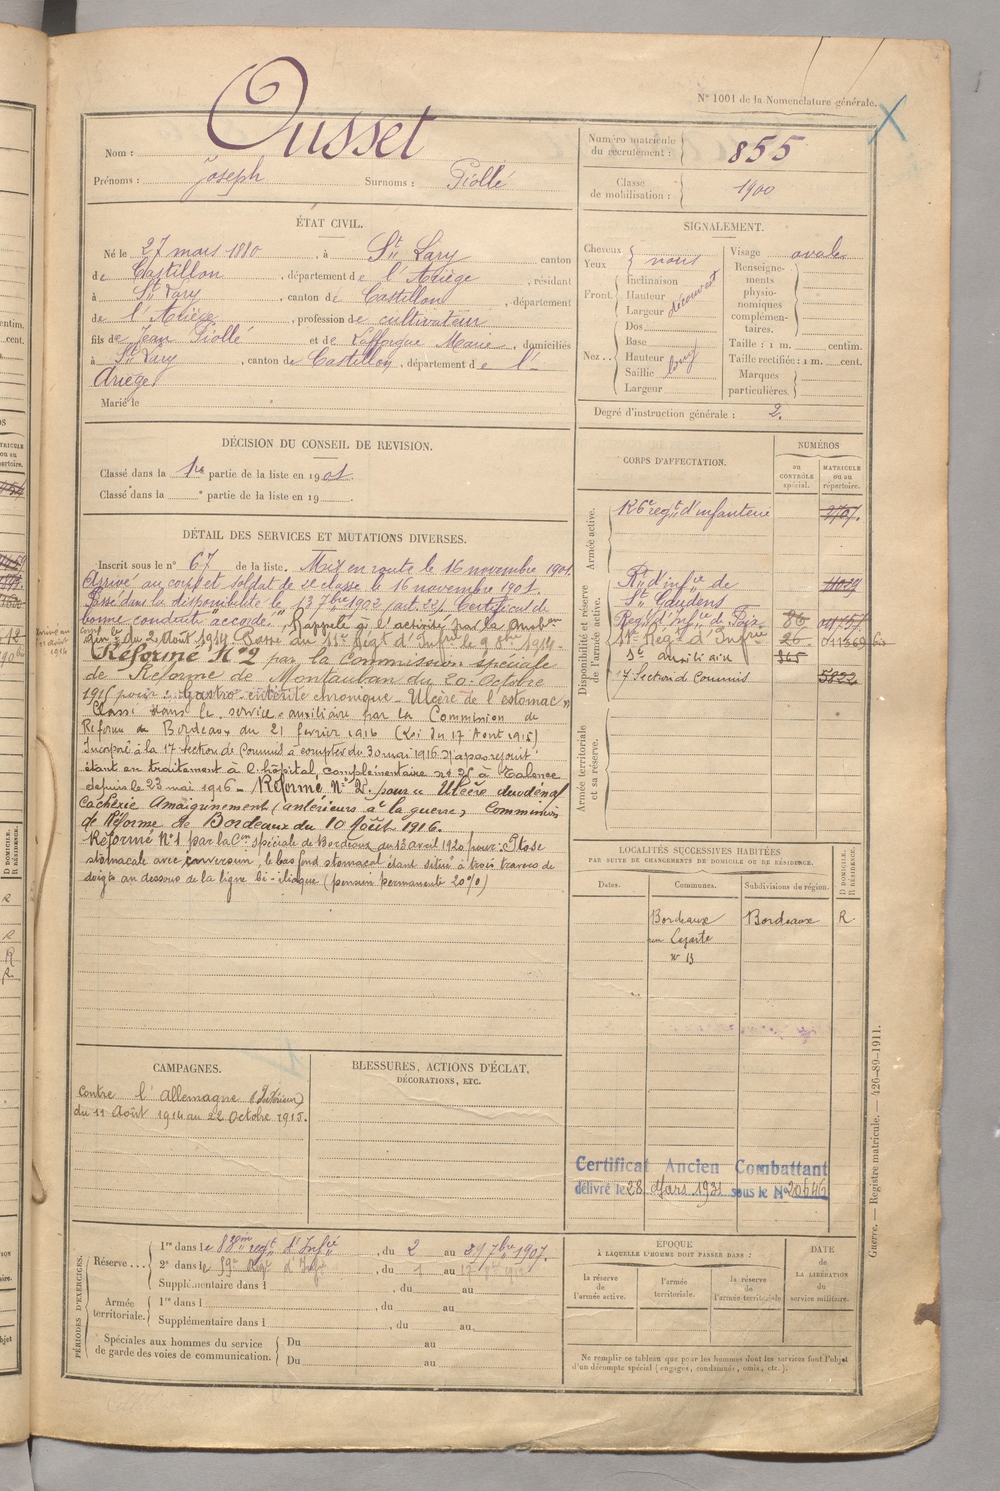 N° 1001 de la Nomenclature générale.
Nom : Ousset
Prénoms : Joseph Surnoms : Piollé
Numéro matricule du recrutement : 855
Classe de mobilisation : 1900
ÉTAT CIVIL.
Né le 27 mars 1880, à St Lary canton
de Castillon, département de l'Ariège, résidant
à St Lary, canton de Castillon, département
de l'Ariège, profession de cultivateur
fils de Jean Piollé et de Lafforgue Marie, domiciliés
à St Lary, canton de Castillon, département de l'
Ariège
Marié le
SIGNALEMENT.
Cheveux
Yeux } noirs
Front. { Inclinaison
Hauteur
Largeur
découvert
Nez . . { Dos
Base
Hauteur
Saillie
Largeur
long
Visage ovale
Renseignements physionomiques complémentaires.
Taille : 1 m. centim.
Taille rectifiée : 1 m. cent.
Marques particulières.
Degré d'instruction générale : 2.
DÉCISION DU CONSEIL DE REVISION.
Classé dans la 1re partie de la liste en 1901.
Classé dans la e partie de la liste en 19
DÉTAIL DES SERVICES ET MUTATIONS DIVERSES.
Inscrit sous le n° 67 de la liste. Mis en route le 16 novembre 1901.
Arrivé au corps et soldat de 2e classe le 16 novembre 1901.
Passé dans la disponibilité le 13 7bre 1902 (art. 22) Certificat de
bonne conduite accordé. Rappelé à l'activité par la
du 2 Août 1914 Passé au 11e Régt d'Infrie le 9 8bre 1914.
Réformé N°2 par la Commission spéciale
de Réforme de Montauban du 20 Octobre
1915 pour : Gastro-entérite chronique - Ulcère de l'estomac »
Classé dans le service auxiliaire par la Commission de
Réforme de Bordeaux du 21 février 1916 (Loi du 17 Aout 1915)
Incorporé à la 17e Section de Commis à compter du 30 mai 1916. N'a pas rejoint
étant en traitement à l'hôpital complémentaire n° 25 à Talence
depuis le 23 mai 1916 - Réformé N° 2. pour « Ulcère duodénal
Cachexie Amaigrissement (antérieurs à la guerre) Commission
de Réforme de Bordeaux du 10 Août 1916.
Réformé N°1 par la Con spéciale de Bordeaux du 13 avril 1920 pour : Ptose
stomacale avec, le bas fond stomacal étant situé à trois travers de
doigts au dessous de la ligne bi-iliaque (pension permanente 20%)
Arrivé au
11 août
1914
CORPS D'AFFECTATION.
NUMÉROS
au CONTRÔLE spécial.
MATRICULE ou au répertoire.
Armée active.
126e regt d'infanterie 2707.
Disponibilité et réserve de l'armée active.
Rt d'infie de
St Gaudens 4029
Régt d'infie de Foix 86
11e Regt d'Infrie 26 011369 bis
Sce auxiliaire 365
17e Section de Commis 5822
Armée territoriale et sa réserve.
LOCALITÉS SUCCESSIVES HABITÉES
PAR SUITE DE CHANGEMENTS DE DOMICILE OU DE RÉSIDENCE.
Dates. Communes. Subdivisions de région.
D DOMICILE. R RÉSIDENCE.
Bordeaux Bordeaux R
n° 13
CAMPAGNES.
Contre l'Allemagne (Intérieur)
du 11 Août 1914 au 22 Octobre 1915.
BLESSURES, ACTIONS D'ÉCLAT,
DÉCORATIONS, ETC.
Certificat Ancien Combattant
délivré le 28 Mars 1931 sous le N° 20546
PÉRIODES D'EXERCICES.
Réserve . . . { 1re dans le 88me regt d'Infie, du 2 au 29 7bre 1907.
2e dans le 59e Régt d'Infie, du 1 au 17
Supplémentaire dans l, du au
Armée territoriale. { 1re dans l, du au
Supplémentaire dans l, du au
Spéciales aux hommes du service de garde des voies de communication. { Du au
Du au
ÉPOQUE
À LAQUELLE L'HOMME DOIT PASSER DANS :
la réserve de l'armée active.
l'armée territoriale.
la réserve de l'armée territoriale.
DATE
de
LA LIBÉRATION
du
service militaire.
Ne remplir ce tableau que pour les hommes dont les services font l'objet
d'un décompte spécial (engagés, condamnés, omis, etc.).
Guerre. — Registre matricule. — 426-89-1911.